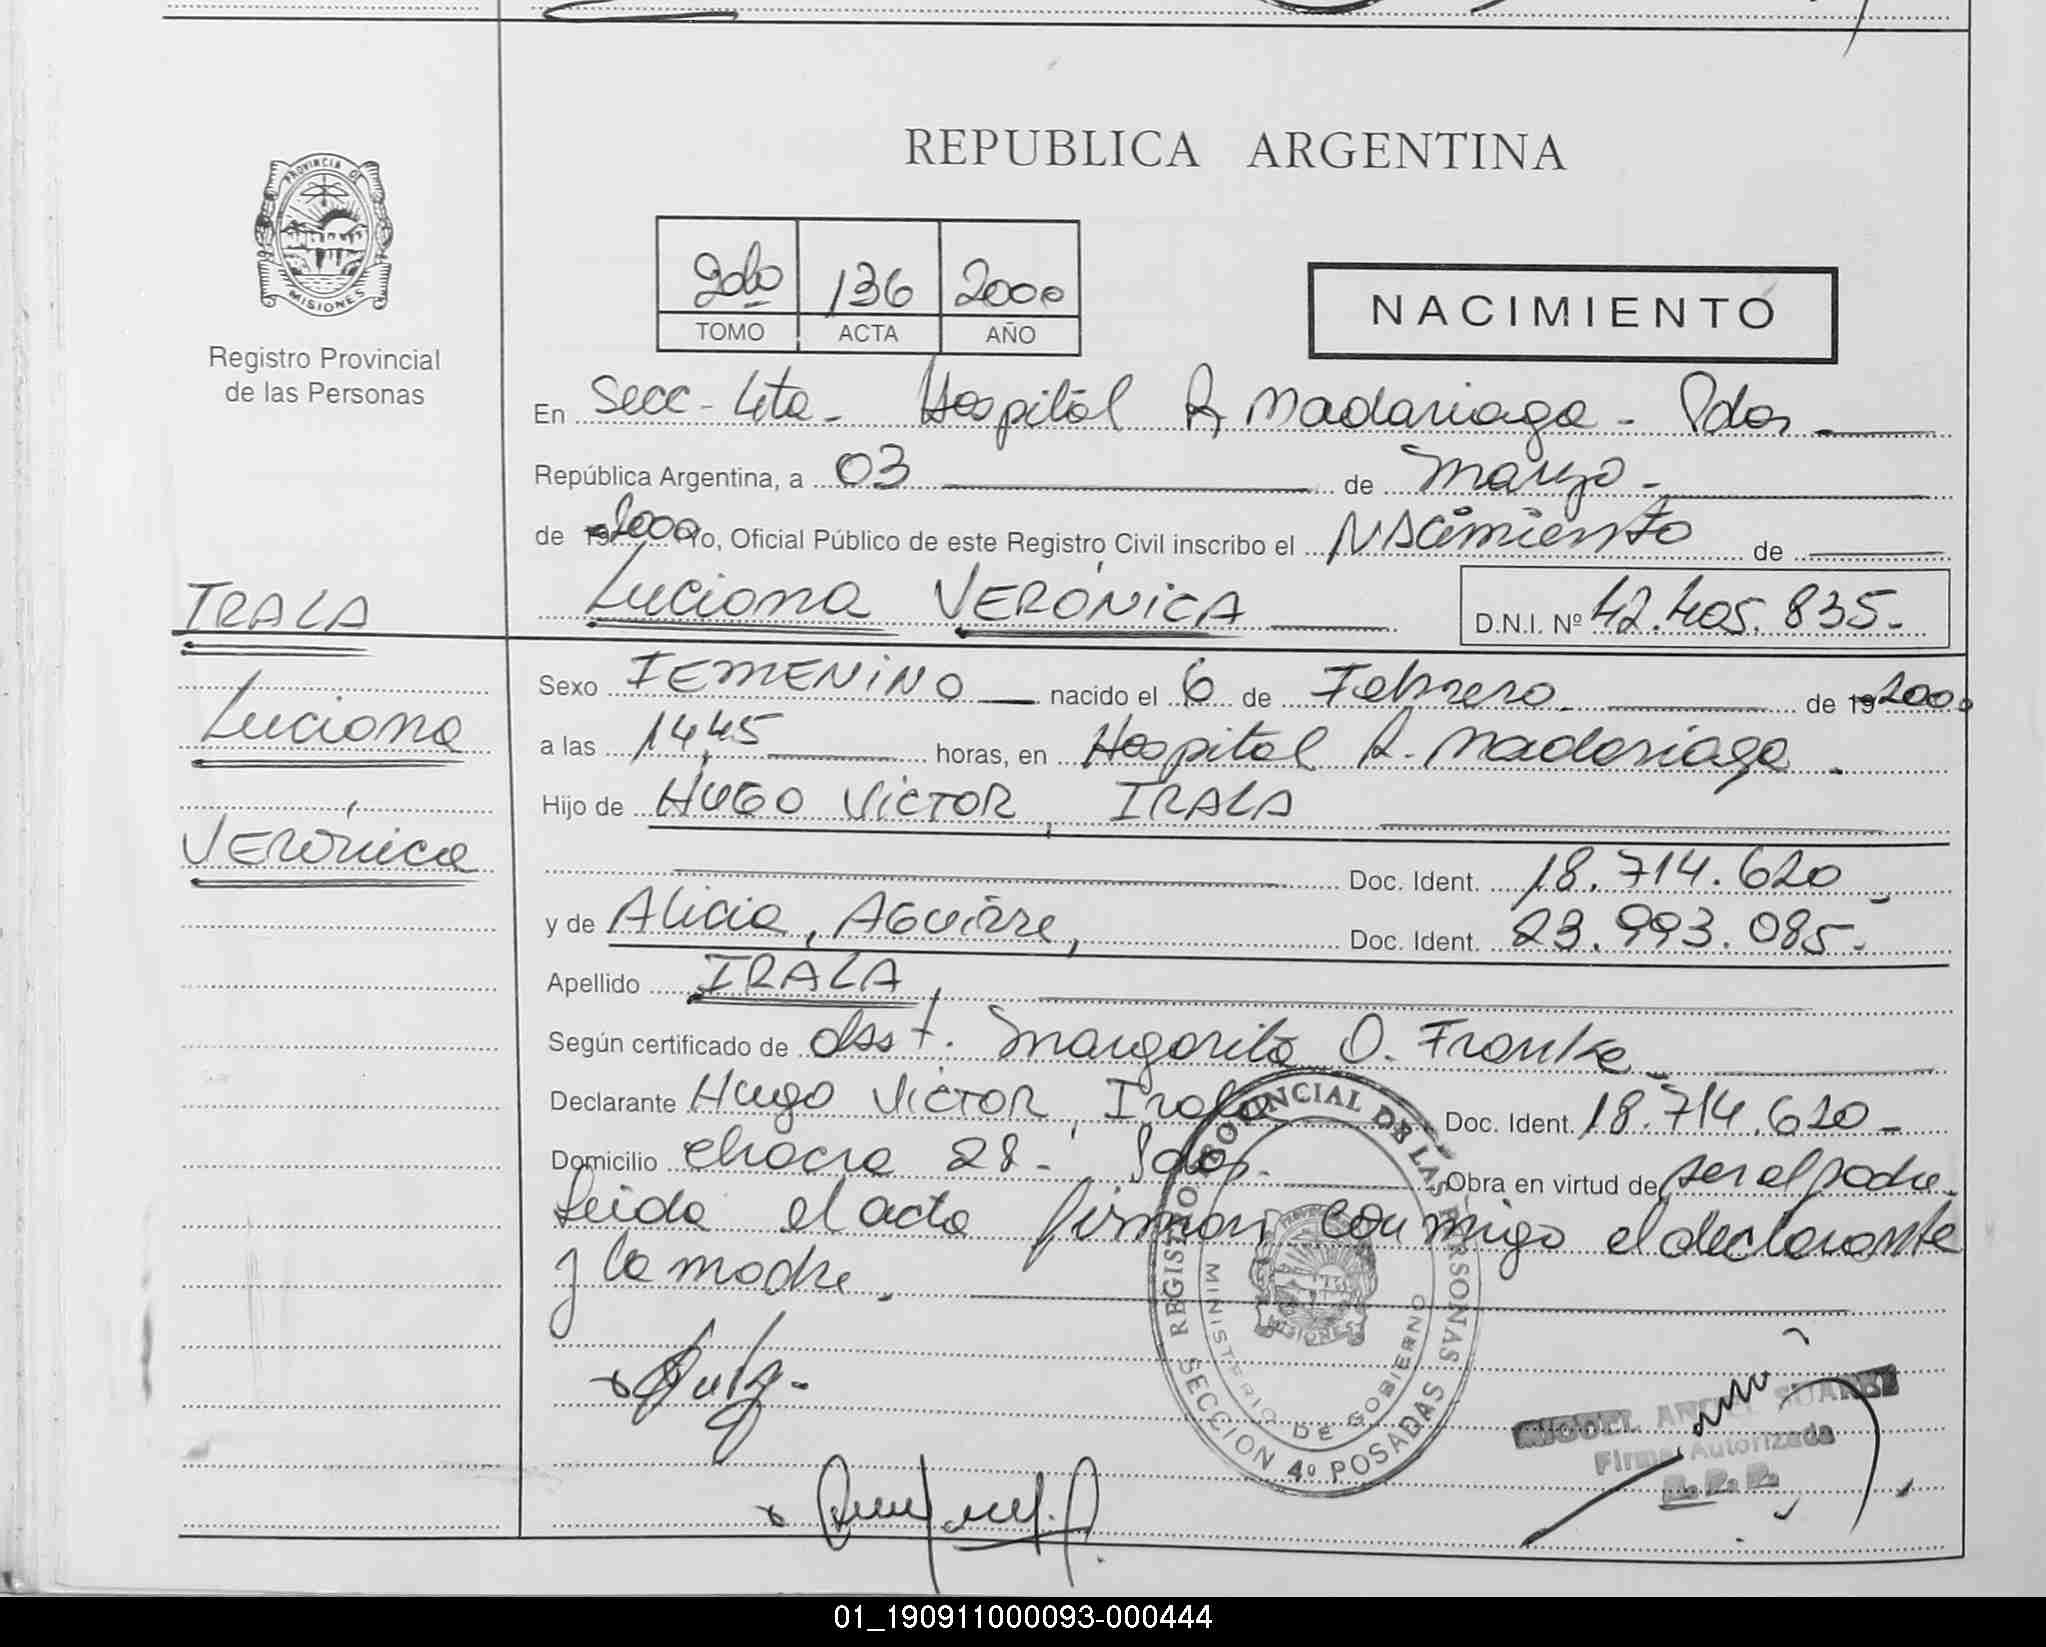 REPUBLICA ARGENTINA
PROVINCIA DE
MISIONES
Registro Provincial
de las Personas
2do 136 2000
TOMO ACTA AÑO
NACIMIENTO
En Secc - 4ta - Hospital R Madariaga - Pdas
República Argentina, a 03 de Marzo -
de 19 2000 Yo, Oficial Público de este Registro Civil inscribo el NAcimiento de
Luciana VERÓNICA D.N.I. Nº 42.405.835-
IRALA
Luciana
VERÓnica
Sexo FEMENINO nacido el 6 de Febrero de 19 2000
a las 14,45 horas, en Hospital R. Madariaga.
Hijo de HUGO VICTOR, IRALA
Doc. Ident. 18.714.620
y de Alicia, AGUIRRE, Doc. Ident. 23.993.085-
Apellido IRALA,
Según certificado de obst. Margarita O. Franke
Declarante Hugo VICTOR, Irala Doc. Ident. 18.714.620-
Domicilio chacra 28- Pdas. Obra en virtud de ser el padre.
Leida el acta firman conmigo el declarante
y la madre.
REGISTRO PROVINCIAL DE LAS PERSONAS
MINISTERIO DE GOBIERNO
MISIONES
SECCION 4º POSADAS
MIGUEL ANGEL SUAREZ
Firma Autorizada
01_190911000093-000444